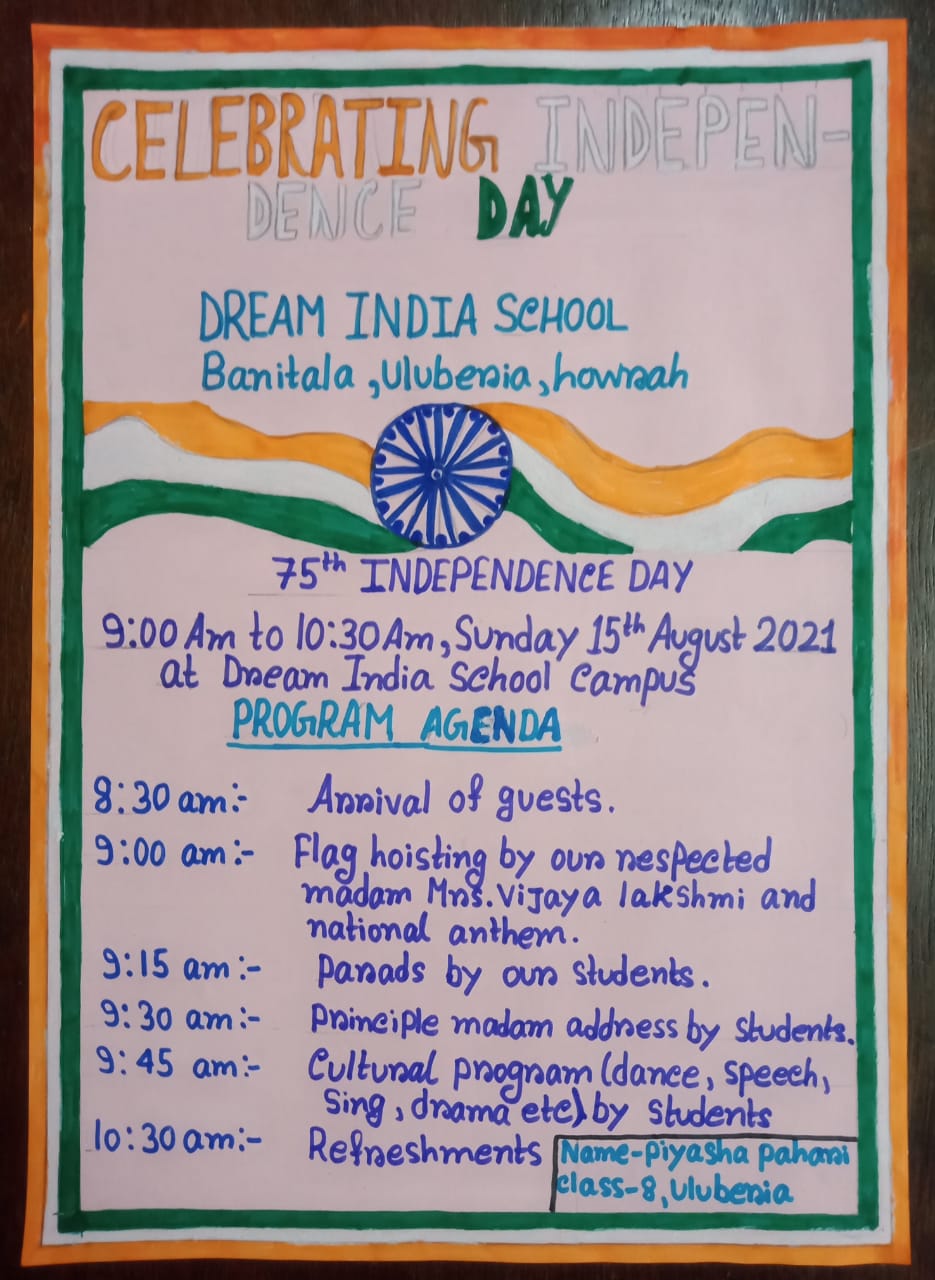 CELEBRATING INDEPEN-
DENCE DAY
DREAM INDIA SCHOOL
Banitala, Uluberia, howrah
75th INDEPENDENCE DAY
9:00 Am to 10:30 Am, Sunday 15th August 2021
at Dream India School Campus
PROGRAM AGENDA
8:30 am:- Arrival of guests.
9:00 am:- Flag hoisting by our respected
madam Mrs. Vijaya lakshmi and
national anthem.
9:15 am:- Parads by our students.
9:30 am:- Principle madam address by students.
9:45 am:- Cultural program (dance, speech,
Sing, drama etc) by students
10:30 am:- Refreshments
Name-Piyasha Pahari
class-8, Uluberia